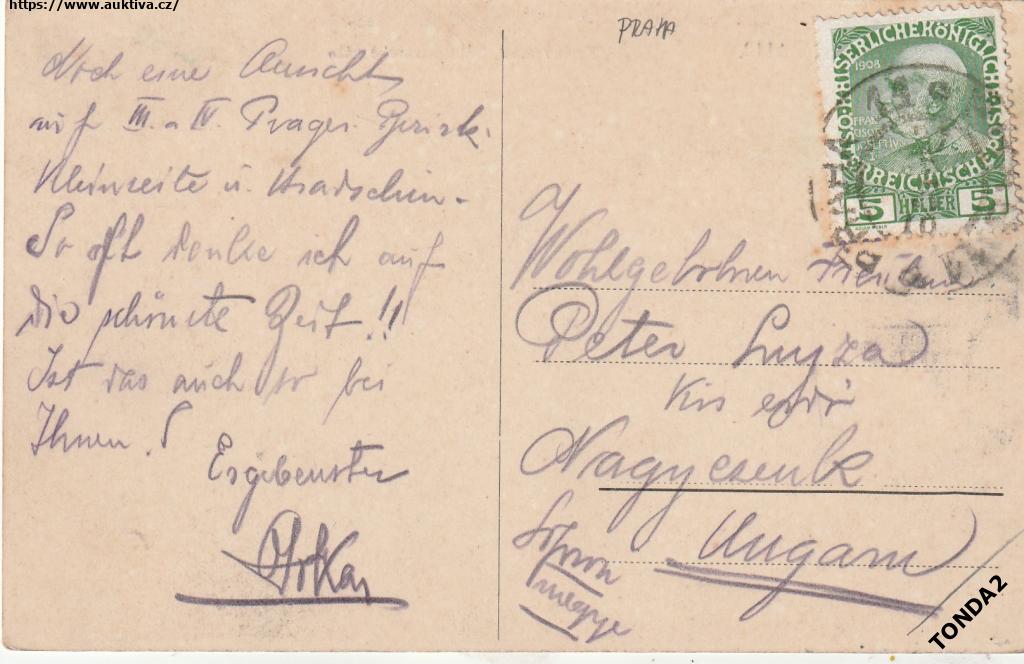 https://www.auktiva.cz/
PRAHA
Noch eine Ansicht
auf III. u IV. Prager Bezirk.
Kleinseite u. Hradschin.
So oft denke ich auf
die schönste Zeit!!
Ist das auch so bei
Ihnen?
Ergebenster
KAISERLICHE KÖNIGLICHE
ÖSTERREICHISCHE POST
1908
5 HELLER 5
Wohlgebohren Fräulein
Peter Lujza
Kis erdő
Nagyczenk
Ungarn
Sopron
megye
TONDA2